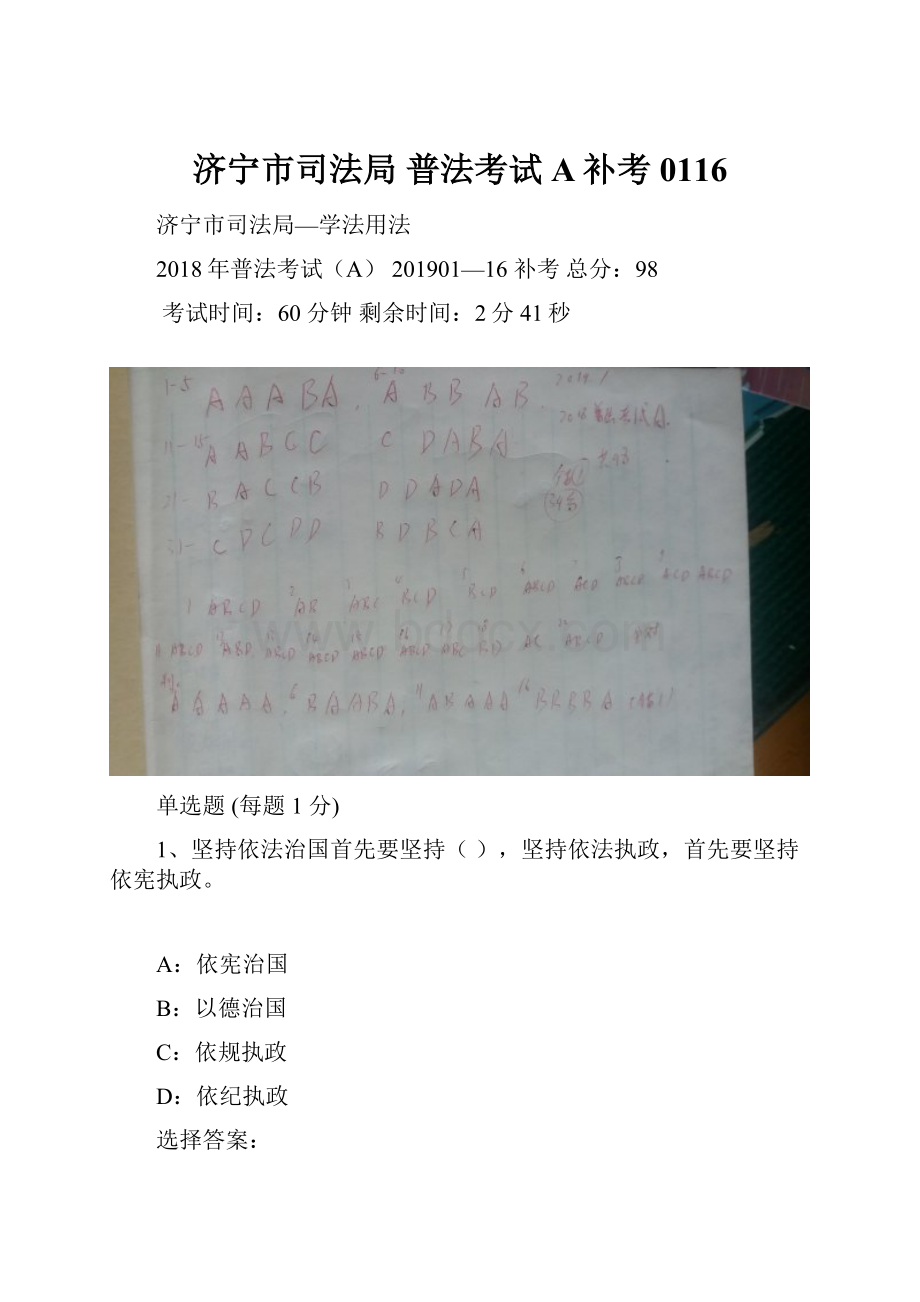 济宁市司法局 普法考试A补考0116
济宁市司法局—学法用法
2018年普法考试（A） 201901—16补考 总分：98
考试时间：60分钟 剩余时间：2分41秒
1-5 A A A B A . 6-10 A B B A B 2019.1
11-15 A A B C C C D A B A 2018普法考试A.
21- B A C C B D D A D A
31- C D C D D B D B C A
1 ABCD 2 AB 3 ABC 4 BCD 5 BCD 6 ABCD 7 ACD 8 ABCD 9 ACD ABCD
www.bdocx.com
A A A A A . 6 B A A B A , 11 A B A A A 16 B B B B A
单选题 (每题1分)
1、坚持依法治国首先要坚持（ ），坚持依法执政，首先要坚持
依宪执政。
A：依宪治国
B：以德治国
C：依规执政
D：依纪执政
选择答案：